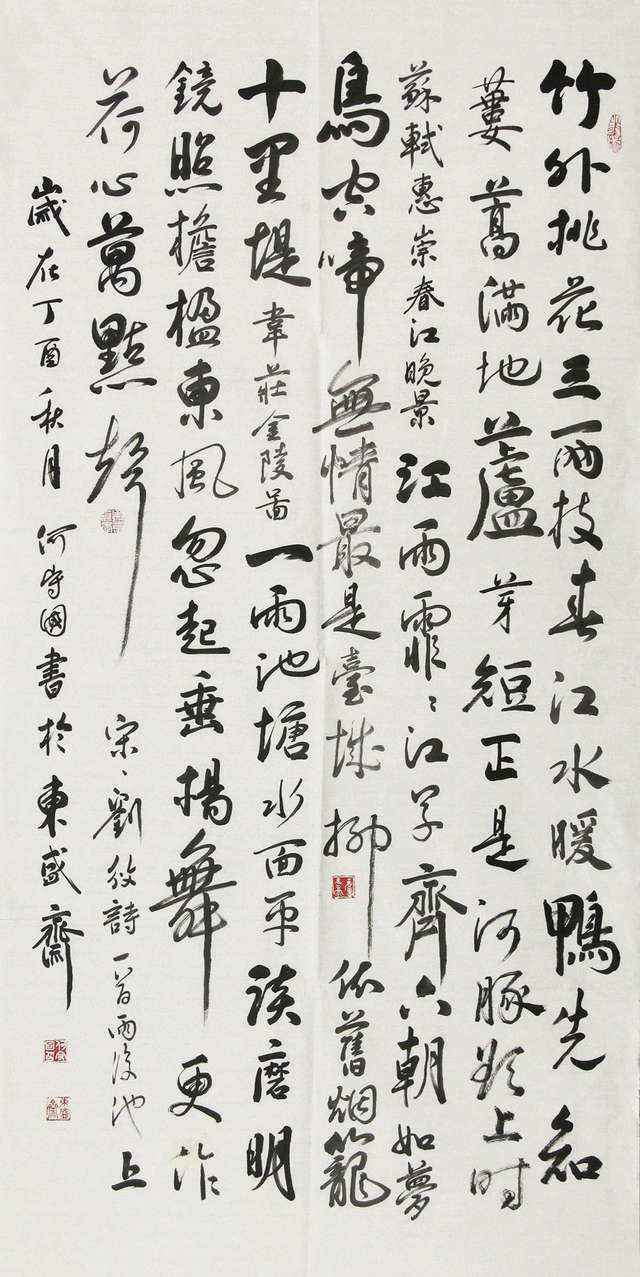 竹外桃花三兩枝春江水暖鴨先知
蔞蒿滿地蘆芽短正是河豚欲上时
蘇軾惠崇春江晚景江雨霏〻江草齊六朝如夢
鳥空啼無情最是臺城柳依舊烟籠
十里堤韋莊金陵啚一雨池塘水面平談磨明
鏡照檐楹東風忽起垂楊舞更作
荷心萬點聲宋、劉攽詩一首雨後池上
歲在丁酉秋月何守國書於東盛齋